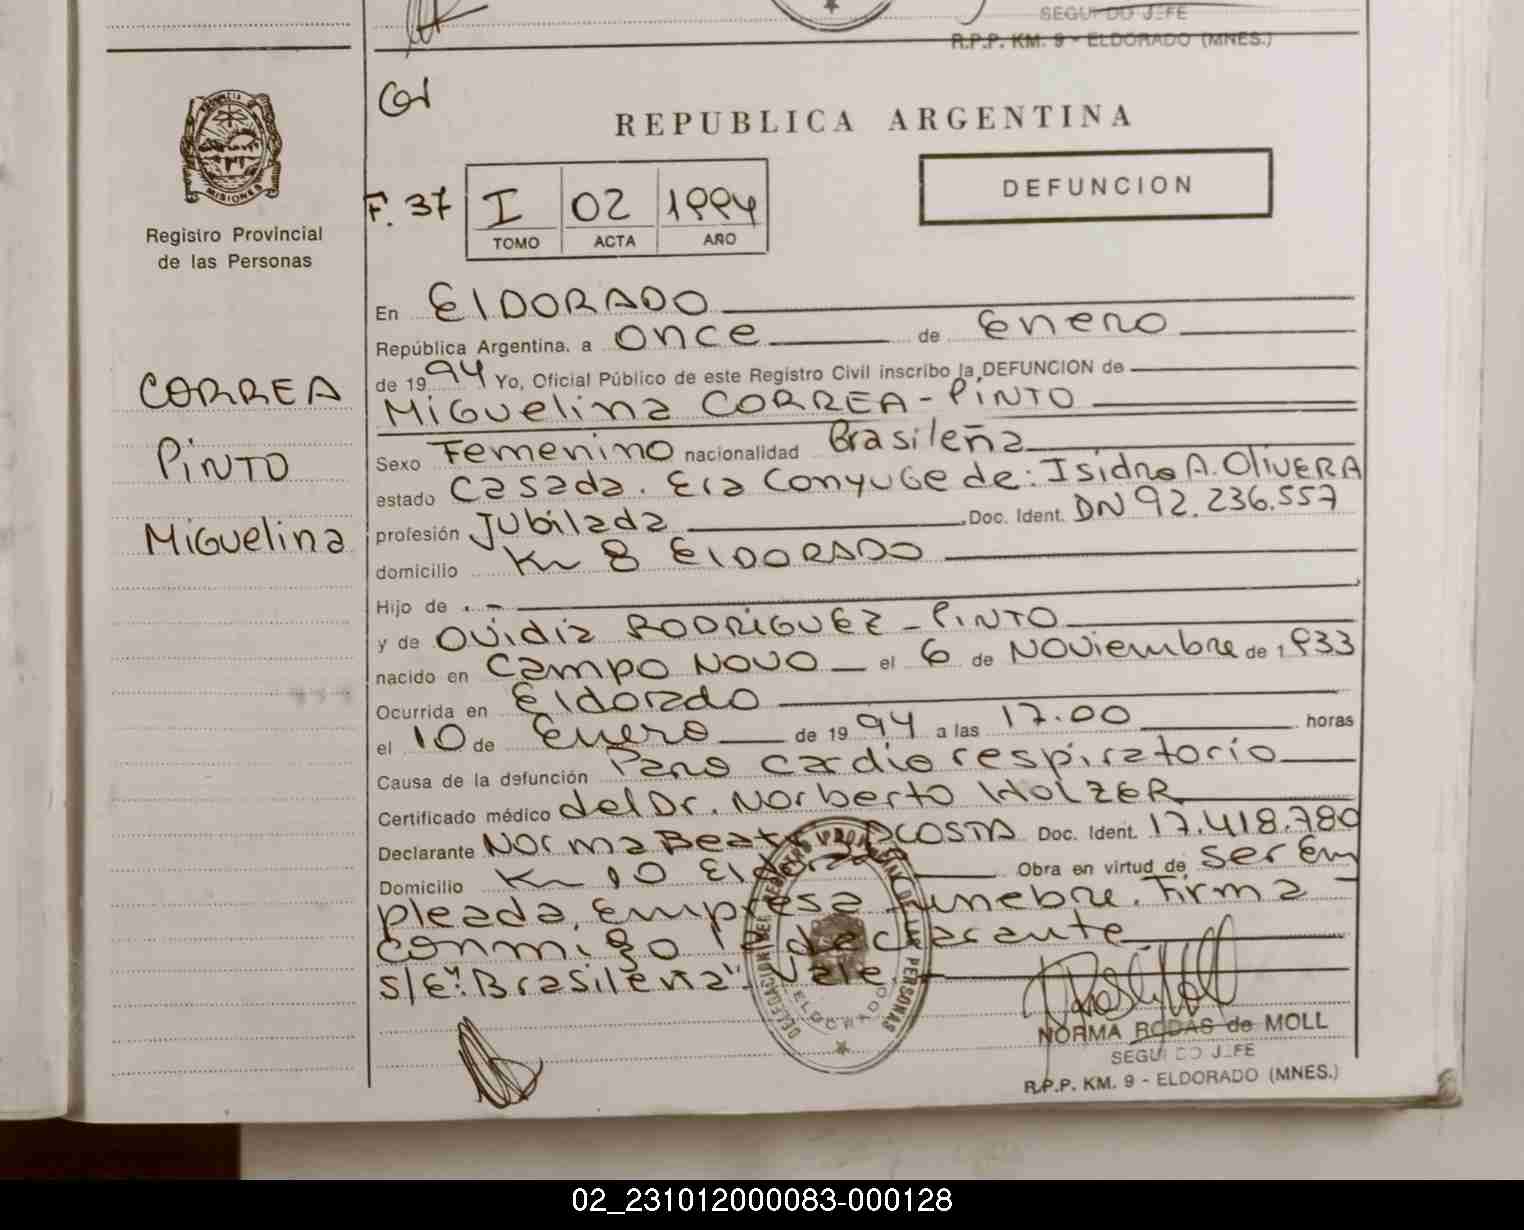 SEGUNDO JEFE
R.P.P. KM. 9 - ELDORADO (MNES.)
PROVINCIA
MISIONES
Registro Provincial
de las Personas
CORREA
PINTO
Miguelina
REPUBLICA ARGENTINA
DEFUNCION
F. 37
I 02 1994
TOMO ACTA AÑO
En ElDORADO
República Argentina, a once de Enero
de 1994 Yo, Oficial Público de este Registro Civil inscribo la DEFUNCION de
Miguelina CORREA - PINTO
Sexo Femenino nacionalidad Brasileña
estado Casada. Era Conyuge de: Isidro A. OliVERA
profesión Jubilada Doc. Ident. DN 92.236.557
domicilio Km 8 ElDORADO
Hijo de . -
y de Ovidia RODRIGUEZ - PINTO
nacido en Campo Novo el 6 de Noviembre de 1933
Ocurrida en Eldorado
el 10 de Enero de 1994 a las 17.00 horas
Causa de la defunción Paro cardio respiratorio
Certificado médico del Dr. Norberto HOLZER
Declarante Norma Beatriz ACOSTA Doc. Ident. 17.418.780
Domicilio Km 10 Eldorado Obra en virtud de ser em
pleada, Empresa Funebre. Firma
conmigo la declarante
s/e: "Brasileña". Vale
DELEGACION DEL REGISTRO PROVINCIAL DE LAS PERSONAS
ELDORADO
NORMA RODAS de MOLL
SEGUNDO JEFE
R.P.P. KM. 9 - ELDORADO (MNES.)
02_231012000083-000128